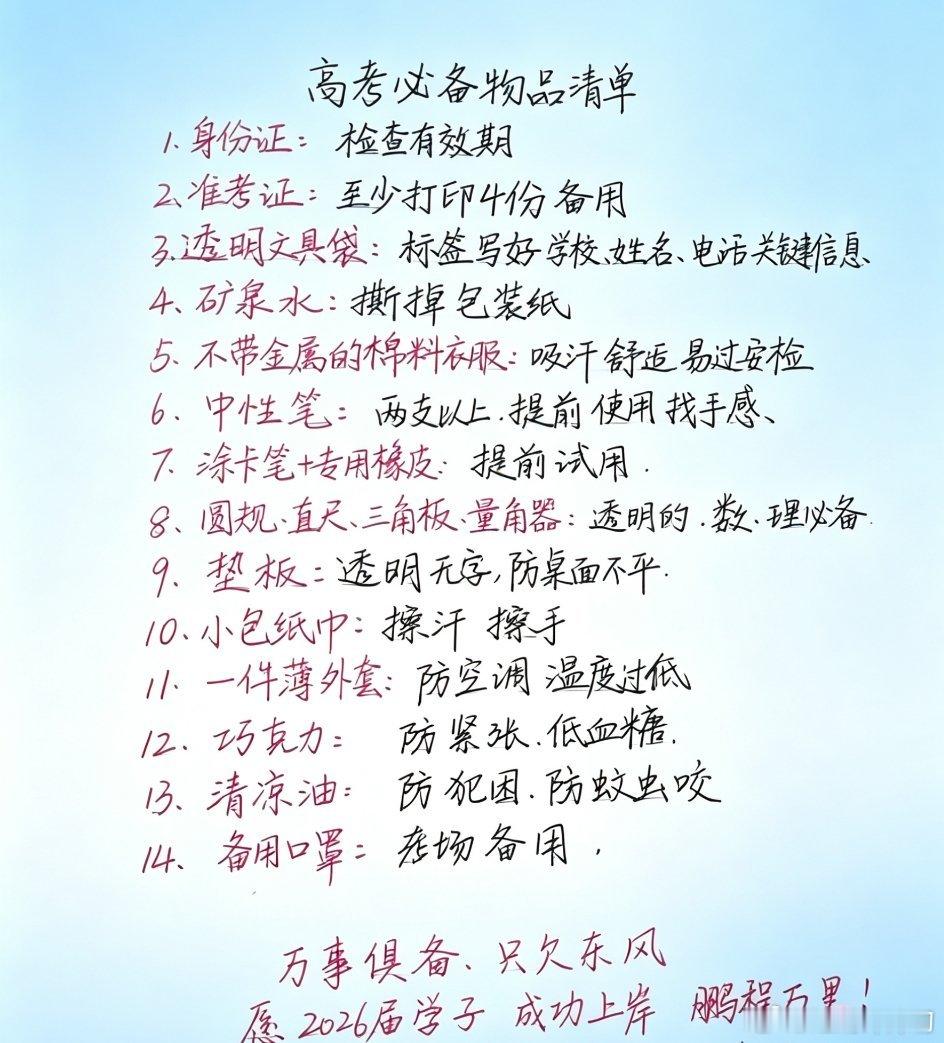 高考必备物品清单
1.身份证：检查有效期
2、准考证：至少打印4份备用
3.透明文具袋：标签写好学校、姓名、电话关键信息
4、矿泉水：撕掉包装纸
5、不带金属的棉料衣服：吸汗舒适易过安检
6、中性笔：两支以上.提前使用找手感、
7、涂卡笔+专用橡皮：提前试用.
8、圆规、直尺、三角板、量角器：透明的.数、理必备.
9、垫板：透明无字,防桌面不平.
10、小包纸巾：擦汗 擦手
11、一件薄外套：防空调 温度过低
12、巧克力：防紧张.低血糖.
13、清凉油：防犯困.防蚊虫咬
14、备用口罩：考场备用.
万事俱备、只欠东风
愿2026届学子 成功上岸 鹏程万里！